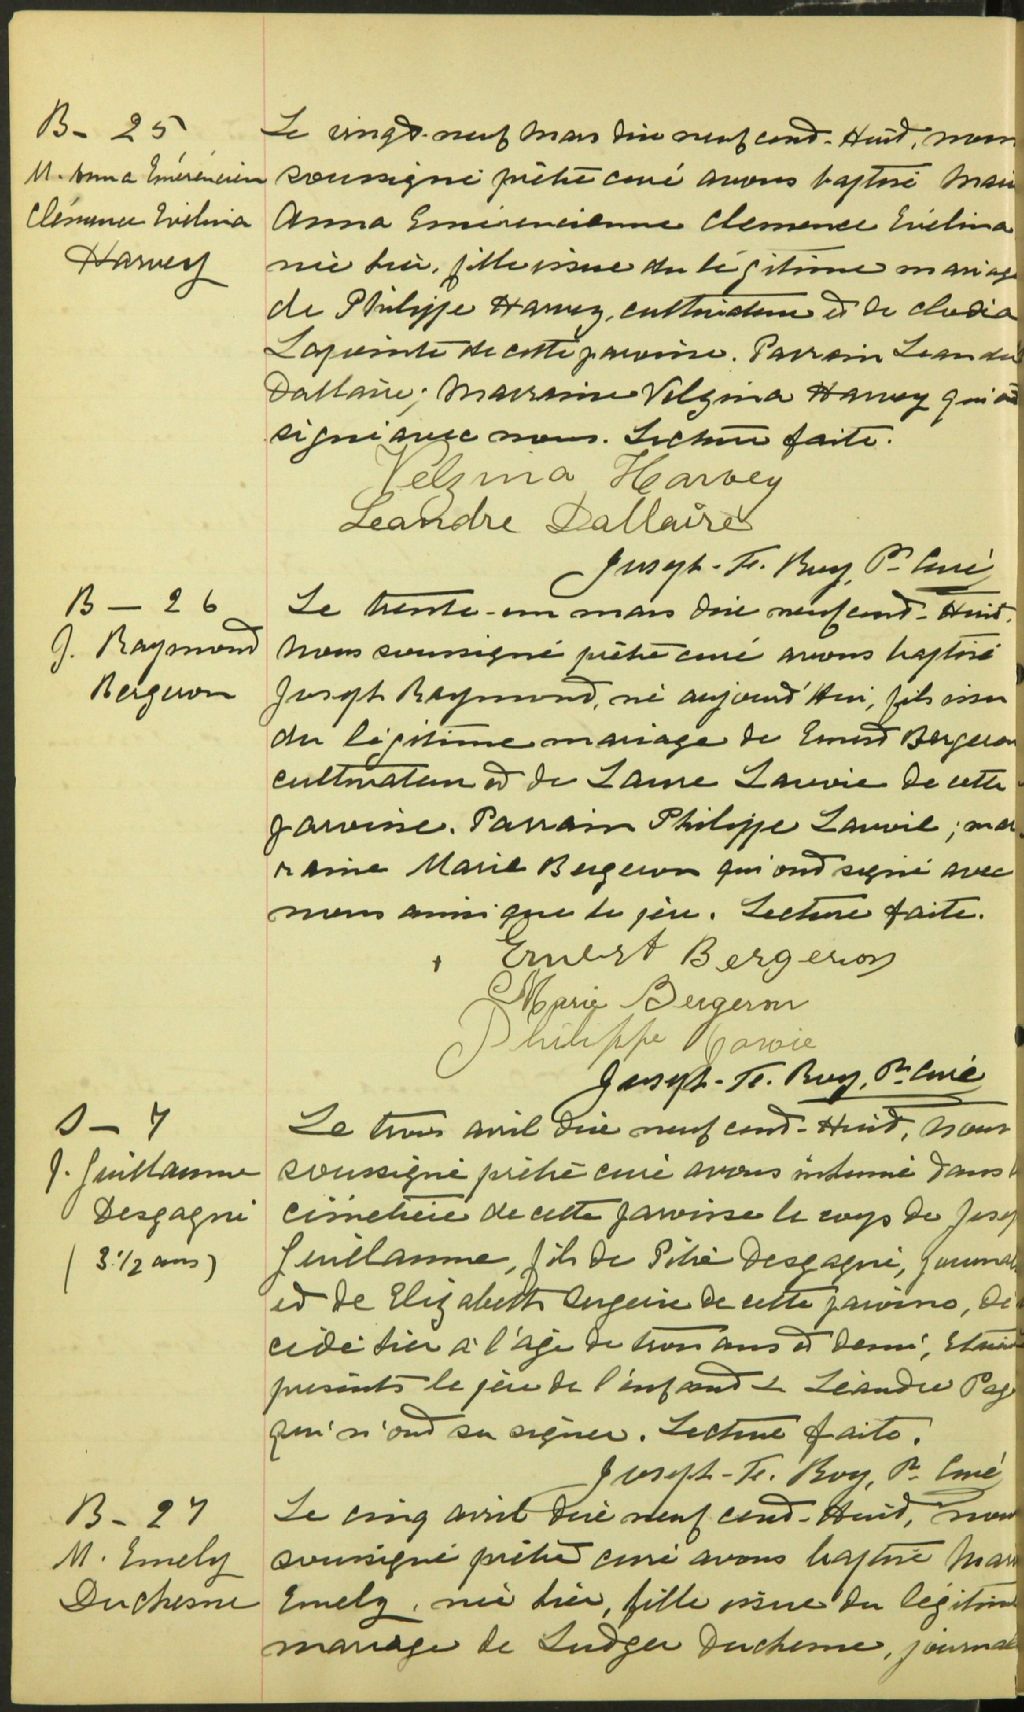 B - 25
M. Anna Émérencien
Clémence Évélina
Harvey
Le vingt-neuf mars dix neuf cent-huit, nous
soussigné prêtre curé avons baptisé Marie
Anna Emérencienne Clemence Evélina
née hier, fille issue du légitime mariage
de Philippe Harvey, cultivateur et de Clodia
Lapointe de cette paroisse. Parrain Leandre
Dallaire; Marraine Velzina Harvey qui ont
signé avec nous. Lecture faite.
Velzina Harvey
Leandre Dallaire
Joseph-Ths. Roy, Ptre Curé
B - 26
J. Raymond
Bergeron
Le trente-un mars dix neuf cent-huit,
Nous soussigné prêtre curé avons baptisé
Joseph Raymond, né aujourd'hui, fils issu
du légitime mariage de Ernest Bergeron
cultivateur et de Laure Lavoie de cette
paroisse. Parrain Philippe Lavoie; mar
raine Marie Bergeron qui ont signé avec
nous ainsi que le père. Lecture faite.
Ernest Bergeron
Marie Bergeron
Philippe Lavoie
Joseph-Ths. Roy, Ptre Curé
S - 7
J. Guillaume
Desgagné
(3 1/2 ans)
Le trois avril dix neuf cent-huit, Nous
soussigné prêtre curé avons inhumé dans
cimetière de cette paroisse le corps de Josep
Guillaume, fils de Pitre Desgagné, journal
et de Elizabeth de cette paroisse, dé
cédé hier à l'âge de trois ans et demi, Etaient
présents le père de l'enfant & Léandre
qui n'ont su signer. Lecture faite.
Joseph-Ths. Roy, Ptre Curé
B - 27
M. Emely
Duchesne
Le cinq avril dix neuf cent-huit, nous
soussigné prêtre curé avons baptisé Marie
Emely, née hier, fille issue du légitime
mariage de Ludger Duchesne, journal